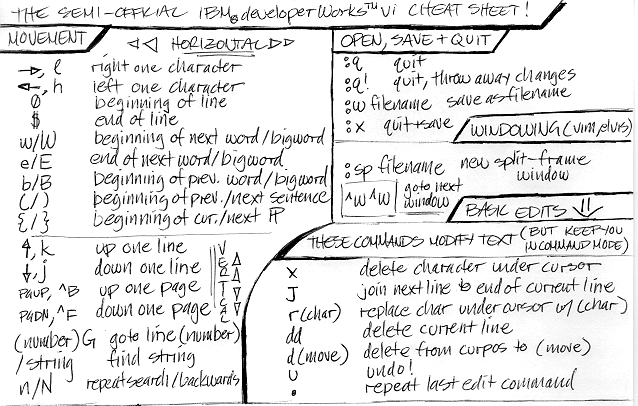 THE SEMI-OFFICIAL IBM® developerWorks™ vi CHEAT SHEET!
MOVEMENT
◁◁ HORIZONTAL ▷▷
→, l right one character
←, h left one character
0 beginning of line
$ end of line
w/W beginning of next word/bigword
e/E end of next word/bigword
b/B beginning of prev. word/bigword
(/) beginning of prev./next sentence
{/} beginning of cur./next ¶
↑, k up one line
↓, j down one line
PGUP, ^B up one page
PGDN, ^F down one page
VERTICAL
(number)G goto line (number)
/string find string
n/N repeat search/backwards
OPEN, SAVE + QUIT
:q quit
:q! quit, throw away changes
:w filename save as filename
:x quit + save
WINDOWING (vim, elvis)
:sp filename new split-frame
window
^w ^w goto next
window
BASIC EDITS ⇓
THESE COMMANDS MODIFY TEXT (BUT KEEP YOU
IN COMMAND MODE)
x delete character under cursor
J join next line to end of current line
r(char) replace char under cursor w/(char)
dd delete current line
d(move) delete from curpos to (move)
u undo!
. repeat last edit command